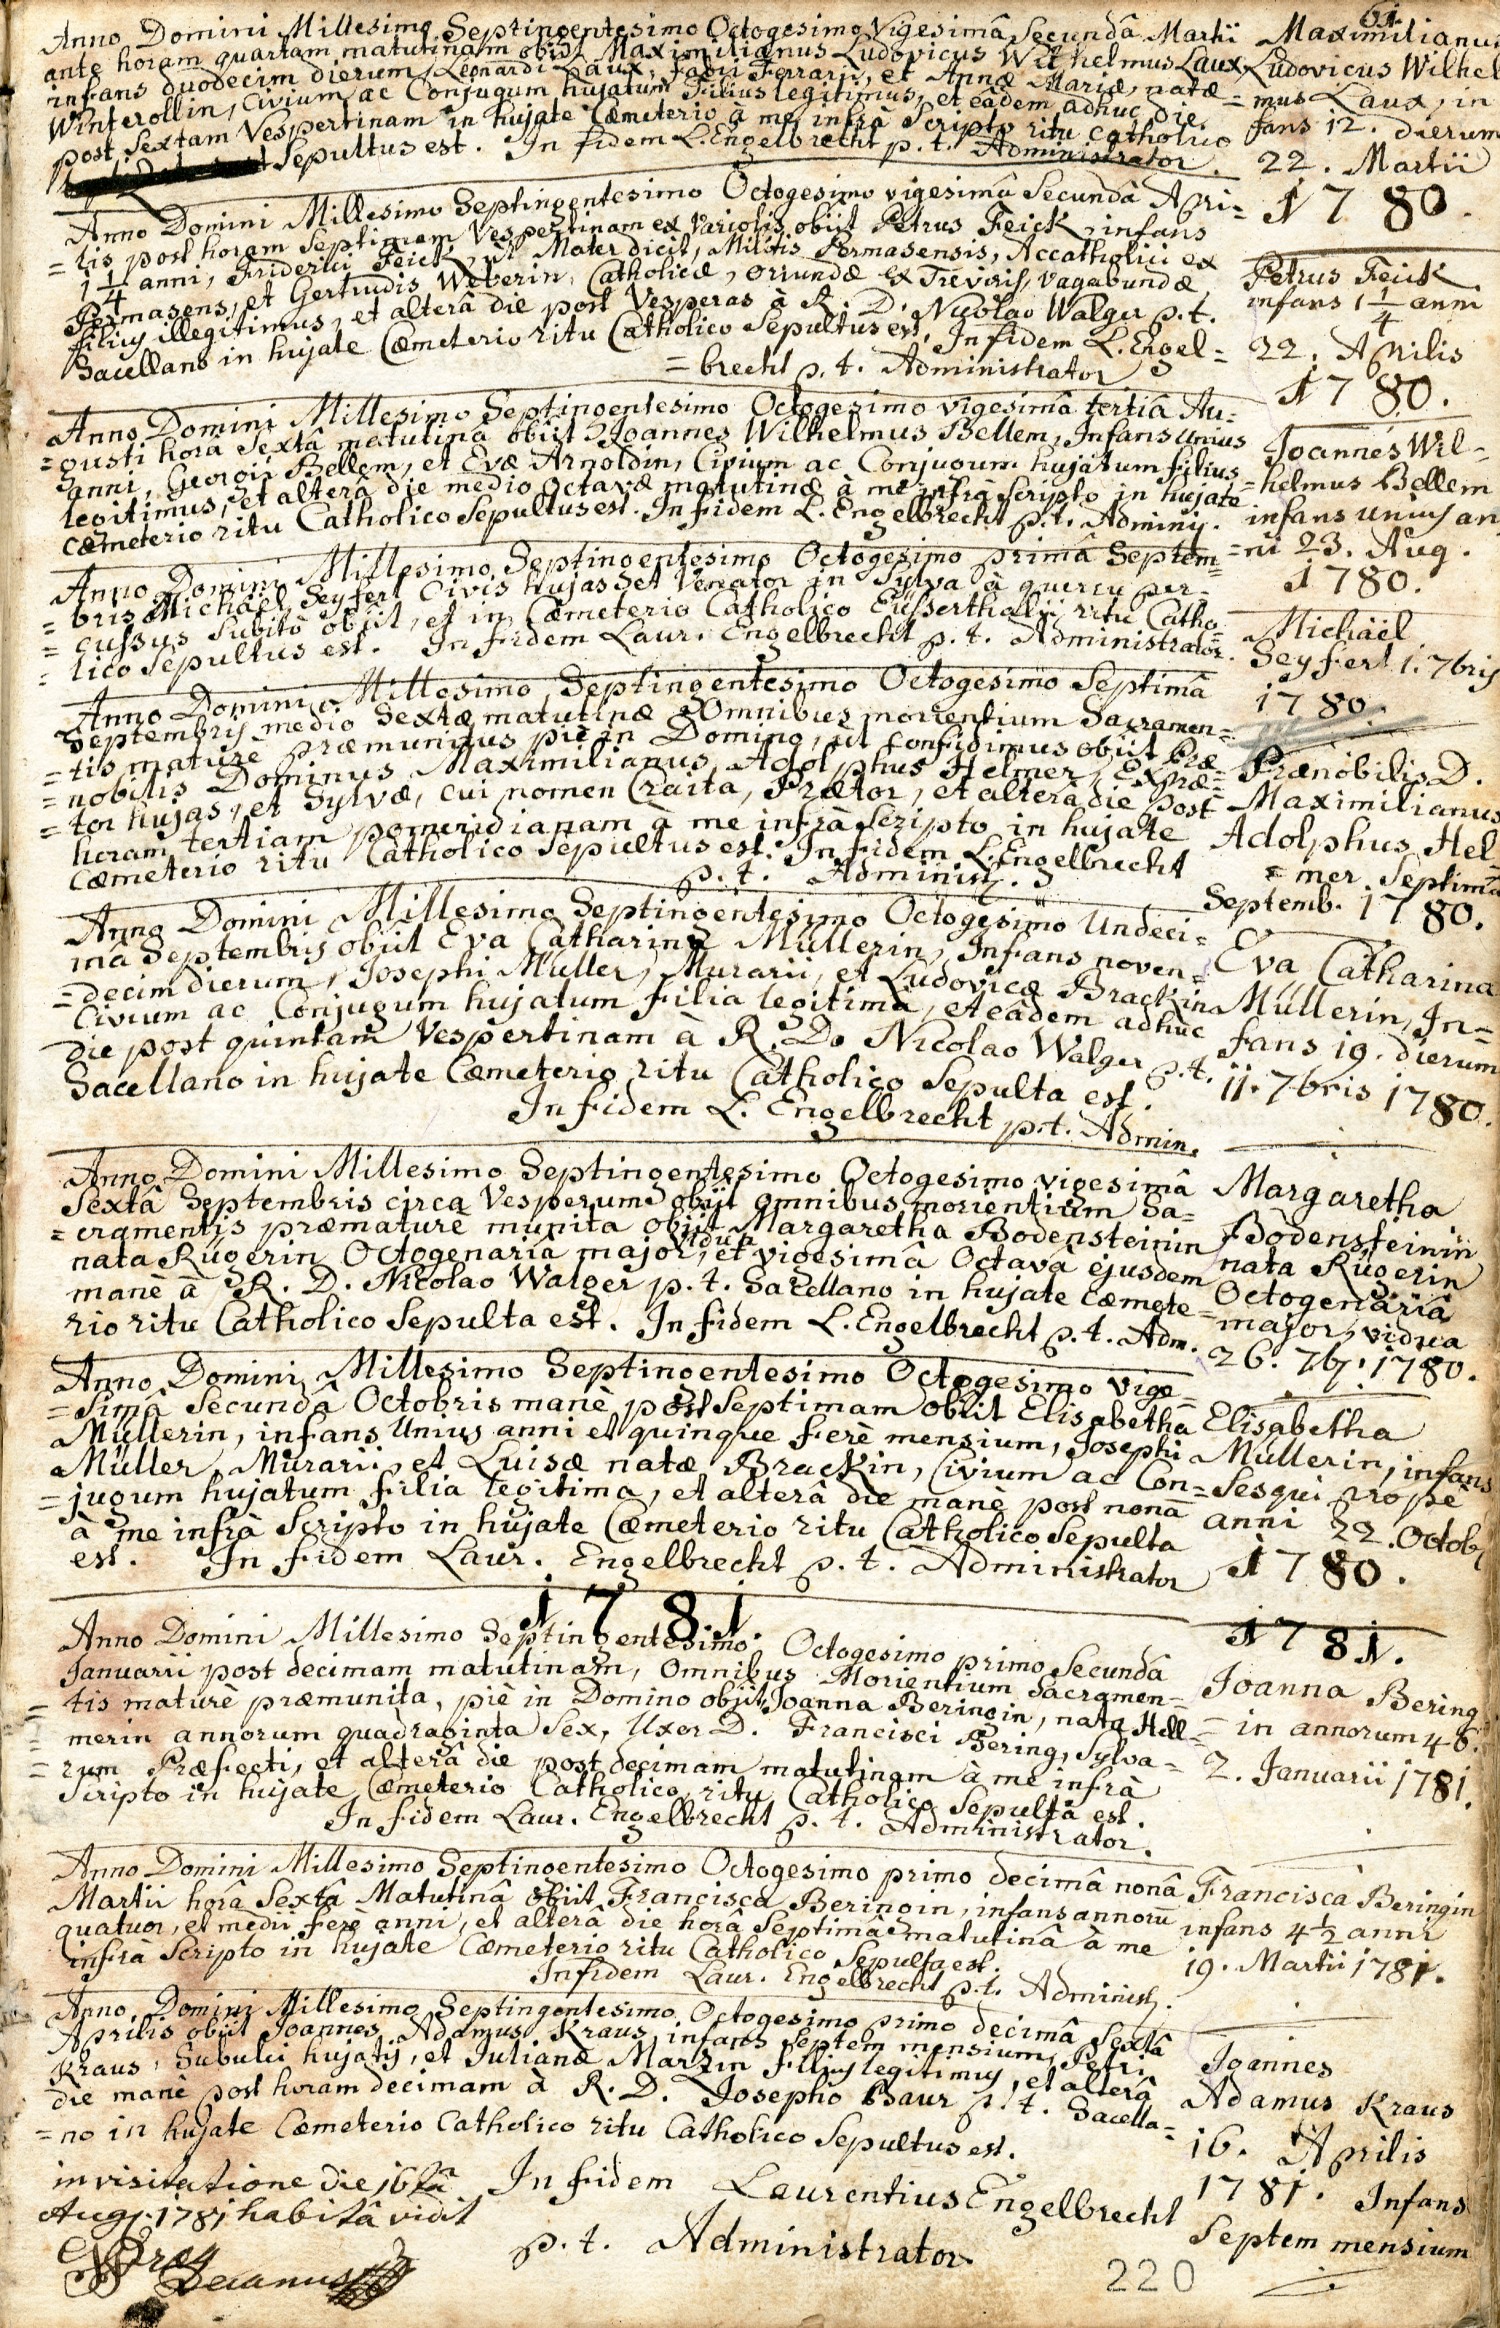 61.
Anno Domini Millesimo Septingentesimo Octogesimo Vigesimâ Secundâ Martii
ante horam quartam matutinam obiit Maximilianus Ludovicus Wilhelmus Laux,
infans duodecim dierum, Leonardi Laux, Fabri Ferrarii, et Annæ Mariæ, natæ
Winterollin, Civium ac Conjugum hujatum Filius legitimus, et eâdem adhuc die
post Sextam Vespertinam in hujate Cæmeterio à me infrà Scripto ritu catholico
Sepultus est. In fidem L. Engelbrecht p. t. Administrator.
Maximilianus
Ludovicus Wilhel
= mus Laux, in
fans 12. dierum
22. Martii
1780.
Anno Domini Millesimo Septingentesimo Octogesimo vigesimâ Secundâ Apri=
= lis post horam Septimam Vespertinam ex Variolis obiit Petrus Feick, infans
1 1/4 anni, Friderici Feick, ut Mater dicit, Militis Permasensis, Accatholici ex
Permasens, et Gertrudis Weberin, Catholicæ, orrundæ ex Treviris, vagabundæ
filius illegitimus, et alterâ die post Vesperas à R. D. Nicolao Walger p. t.
Sacellano in hujate Cæmeterio ritu Catholico Sepultus est. In fidem L. Engel=
= brecht p. t. Administrator
Petrus Feick
infans 1 1/4 anni
22. Aprilis
1780.
Anno Domini Millesimo Septingentesimo Octogesimo vigesimâ tertiâ Au=
= gusti horâ Sextâ matutinâ obiit Joannes Wilhelmus Bellem, Infans unius
anni, Georgii Bellem, et Evæ Arnoldin, Civium ac Conjugum hujatum filius
legitimus, et alterâ die medio octavæ matutinæ à me infrà Scripto in hujate
Cæmeterio ritu Catholico Sepultus est. In fidem L. Engelbrecht p. t. Adminis.
Joannes Wil=
= helmus Bellem
infans unius an
= ni 23. Aug.
1780.
Anno Domini Millesimo Septingentesimo Octogesimo primâ Septem=
= bris Michaël Seyfert Civis hujas et Venator in Sylva à quercu per=
= cussus Subitò obiit, et in Cæmeterio Catholico Eüsserthalii ritu Catho=
= lico Sepultus est. In fidem Laur. Engelbrecht p. t. Administrator.
Michaël
Seyfert 1. 7bris
1780.
Anno Domini Millesimo Septingentesimo Octogesimo Septimâ
Septembris medio Sextæ matutinæ Omnibus morientium Sacramen=
= tis maturè præmunitus piè in Domino, ut confidimus obiit Præ=
= nobilis Dominus Maximilianus Adolphus Helmer, Expræ=
= tor hujas, et Sylvæ, cui nomen Craita, Prætor, et alterâ die post
horam tertiam pomeridianam à me infrà Scripto in hujate
Cæmeterio ritu Catholico Sepultus est. In fidem L. Engelbrecht
p. t. Adminis.
Prænobilis D.
Maximilianus
Adolphus Hel=
= mer Septimâ
Septemb. 1780.
Anno Domini Millesimo Septingentesimo Octogesimo Undeci=
mâ Septembris obiit Eva Catharina Müllerin, Infans noven=
= decim dierum, Josephi Müller, Murarii, et Ludovicæ Brackin
Civium ac Conjugum hujatum filia legitima, et eâdem adhuc
die post quintam Vespertinam à R. Do Nicolao Walger p. t.
Sacellano in hujate Cæmeterio ritu Catholico Sepulta est.
In fidem L. Engelbrecht p. t. Admin.
Eva Catharina
Müllerin, In=
fans 19. dierum
11. 7bris 1780.
Anno Domini Millesimo Septingentesimo Octogesimo vigesimâ
Sextâ Septembris circa Vesperum obijt omnibus morientium Sa=
= cramentis præmaturè munita obijt Margaretha Bodensteinin
nata Rügerin Octogenariâ major, vidua, et vigesimâ Octavâ ejusdem
manè à R. D. Nicolao Walger p. t. Sacellano in hujate cæmete=
rio ritu Catholico Sepulta est. In fidem L. Engelbrecht p. t. Adm.
Margaretha
Bodensteinin
nata Rügerin
Octogenariâ
major, vidua
26. 7b. 1780.
Anno Domini Millesimo Septingentesimo Octogesimo Vige=
= simâ Secundâ Octobris manè post Septimam obiit Elisabetha
Müllerin, infans Unius anni et quinque ferè mensium, Josephi
Müller, Murarii, et Luisæ natæ Brackin, Civium ac Con=
= jugum hujatum filia legitima, et alterâ die manè post nonā
à me infrà Scripto in hujate Cæmeterio ritu Catholico Sepulta
est. In fidem Laur. Engelbrecht p. t. Administrator
Elisabetha
Müllerin, infans
Sesqui propè
anni 22. Octob
1780.
1781.
Anno Domini Millesimo Septingentesimo Octogesimo primo Secundâ
Januarii post decimam matutinam, Omnibus Morientium Sacramen=
= tis maturè præmunita, piè in Domino obijt Joanna Beringin, nata Hell=
= merin annorum quadraginta Sex, Uxor D. Francisci Bering, Sylva=
= rum Præfecti, et alterâ die post decimam matutinam à me infrà
Scripto in hujate Cæmeterio Catholico, ritu Catholico Sepulta est.
In fidem Laur. Engelbrecht p. t. Administrator.
1781.
Joanna Bering
= in annorum 46.
2. Januarii 1781.
Anno Domini Millesimo Septingentesimo Octogesimo primo decimâ nonâ
Martii horâ Sextâ Matutinâ obiit Francisca Beringin, infans annorū
quatuor, et medii ferè anni, et alterâ die horâ Septimâ matutinâ à me
infrà Scripto in hujate Cæmeterio ritu Catholico Sepulta est.
In fidem Laur. Engelbrecht p. t. Administ.
Francisca Beringin
infans 4 1/2 anni
19. Martii 1781.
Anno Domini Millesimo Septingentesimo Octogesimo primo decimâ Sextâ
Aprilis obiit Joannes Adamus Kraus, infans Septem mensium, Petri
Kraus, Subulci hujatis, et Julianæ Marzin filius legitimus, et alterâ
die manè post horam decimam à R. D. Josepho Baur p. t. Sacella=
= no in hujate Cæmeterio Catholico ritu Catholico Sepultus est.
In fidem Laurentius Engelbrecht
p. t. Administrator
Joannes
Adamus Kraus
16. Aprilis
1781. Infans
Septem mensium
in visitatione die 16tâ
Aug. 1781 habitâ vidit
Decanus
220